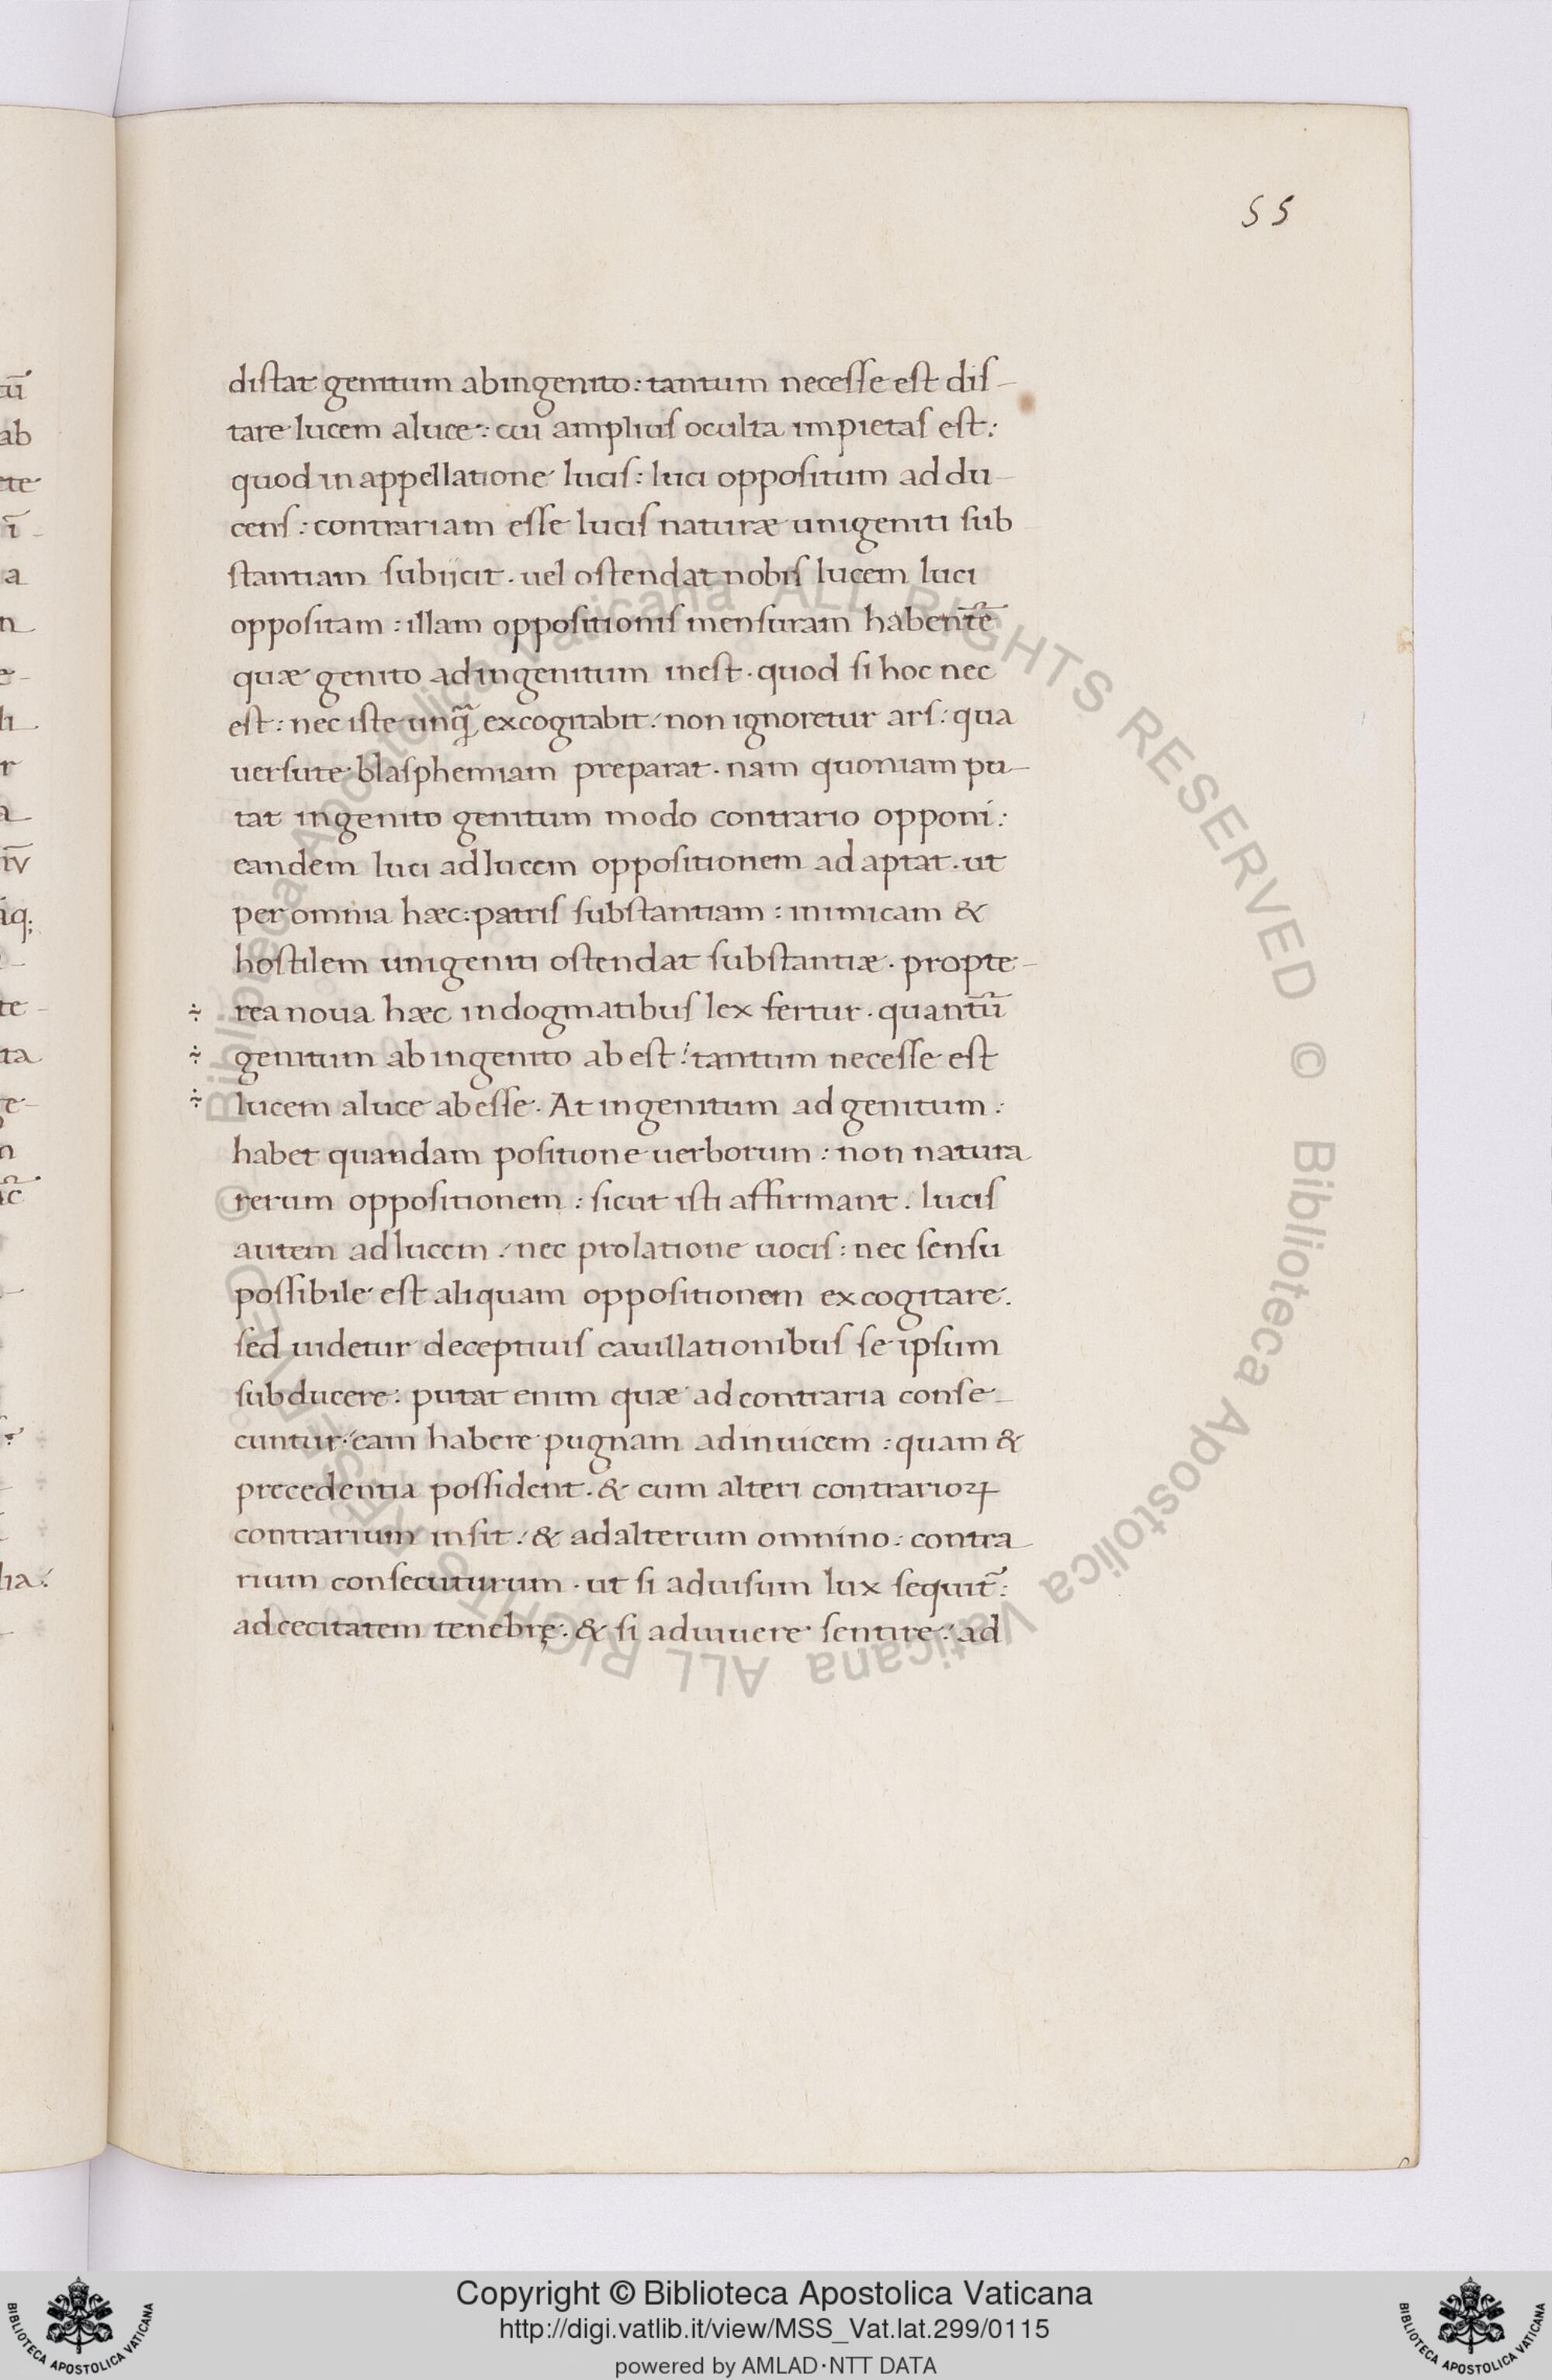 55
distat genitum abingenito: tantum necesse est dis-
tare lucem aluce: cui amplius oculta impietas est:
quod in appellatione lucis: luci oppositum addu-
cens: contrariam esse lucis naturæ unigeniti sub
stantiam subijcit. uel ostendat nobis lucem luci
oppositam: illam oppositionis mensuram habent̃ẽ
quæ genito adingenitum inest. quod si hoc nec
est: nec iste unq̃ excogitabit: non ignoretur ars: qua
uersute blasphemiam preparat. nam quoniam pu-
tat ingenito genitum modo contrario opponi:
eandem luci adlucem oppositionem adaptat. ut
per omnia hæc: patris substantiam: inimicam &
hostilem unigeniti ostendat substantiæ. propte-
rea noua hæc indogmatibus lex fertur. quantũ
genitum ab ingenito abest: tantum necesse est
lucem aluce abesse. At ingenitum ad genitum:
habet quandam positione uerborum: non natura
rerum oppositionem: sicut isti affirmant. lucis
autem adlucem: nec prolatione uocis: nec sensu
possibile est aliquam oppositionem excogitare.
sed uidetur deceptiuis cauillationibus se ipsum
subducere: putat enim quæ adcontraria conse-
cuntur: eam habere pugnam adinuicem: quam &
precedentia possident. & cum alteri contrarioꝝ
contrarium insit: & adalterum omnino: contra
rium consecuturum. ut si aduisum lux sequit̃:
adcecitatem tenebrę. & si aduiuere sentire: ad
Copyright © Biblioteca Apostolica Vaticana
http://digi.vatlib.it/view/MSS_Vat.lat.299/0115
powered by AMLAD·NTT DATA